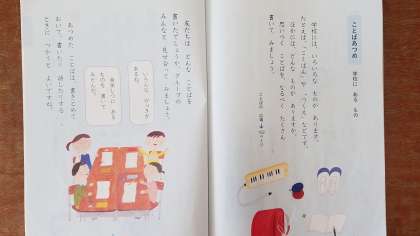 ことばあつめ
学校に ある もの
学校には、いろいろな ものが あります。
たとえば、「こくばん」や、「つくえ」などです。
ほかには、どんな ものが ありますか。
思いつく ことばを、なるべく たくさん
書いて、みましょう。
友だちは どんな ことばを
書いたでしょうか。グループの
みんなで 見せ合って みましょう。
いろんな がっきが
あるね。
教室に ある
ものを 書いて
みたんだ。
あつめた ことばは、書きとめて
おいて、書いたり 話したりする
ときに つかうと よいですね。